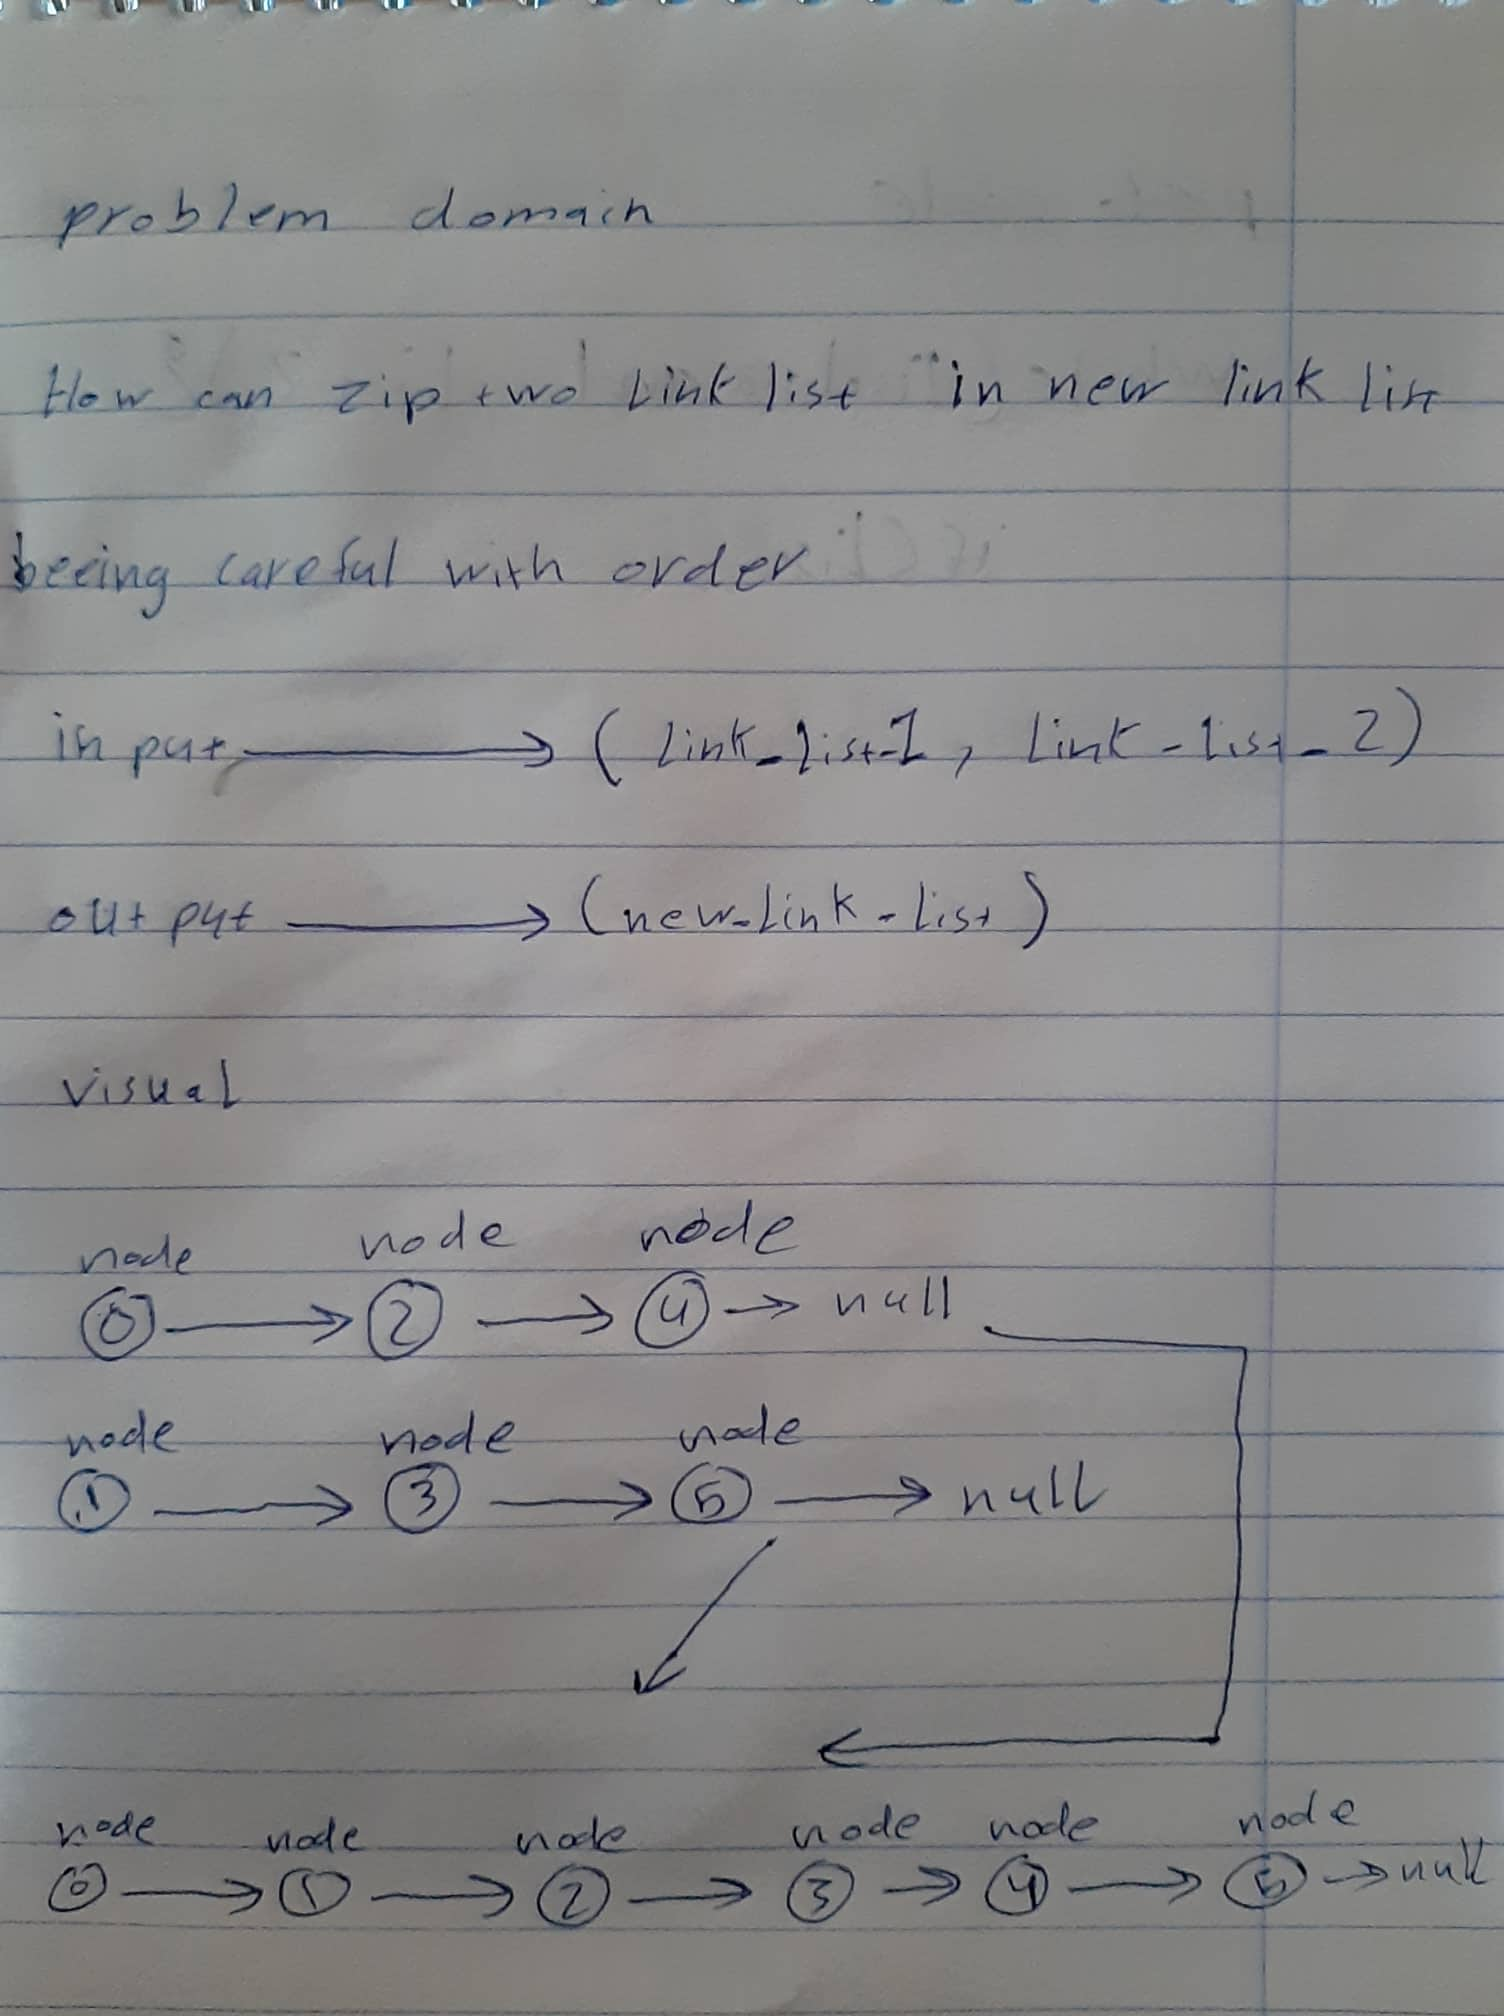 problem domain
How can zip two Link list in new link list
beeing careful with order
input → (Link_list_1, Link-list_2)
output → (new_Link-list)
visual
node node node
0 → 2 → 4 → null
node node node
1 → 3 → 5 → null
node node node node node node
0 → 1 → 2 → 3 → 4 → 5 → null